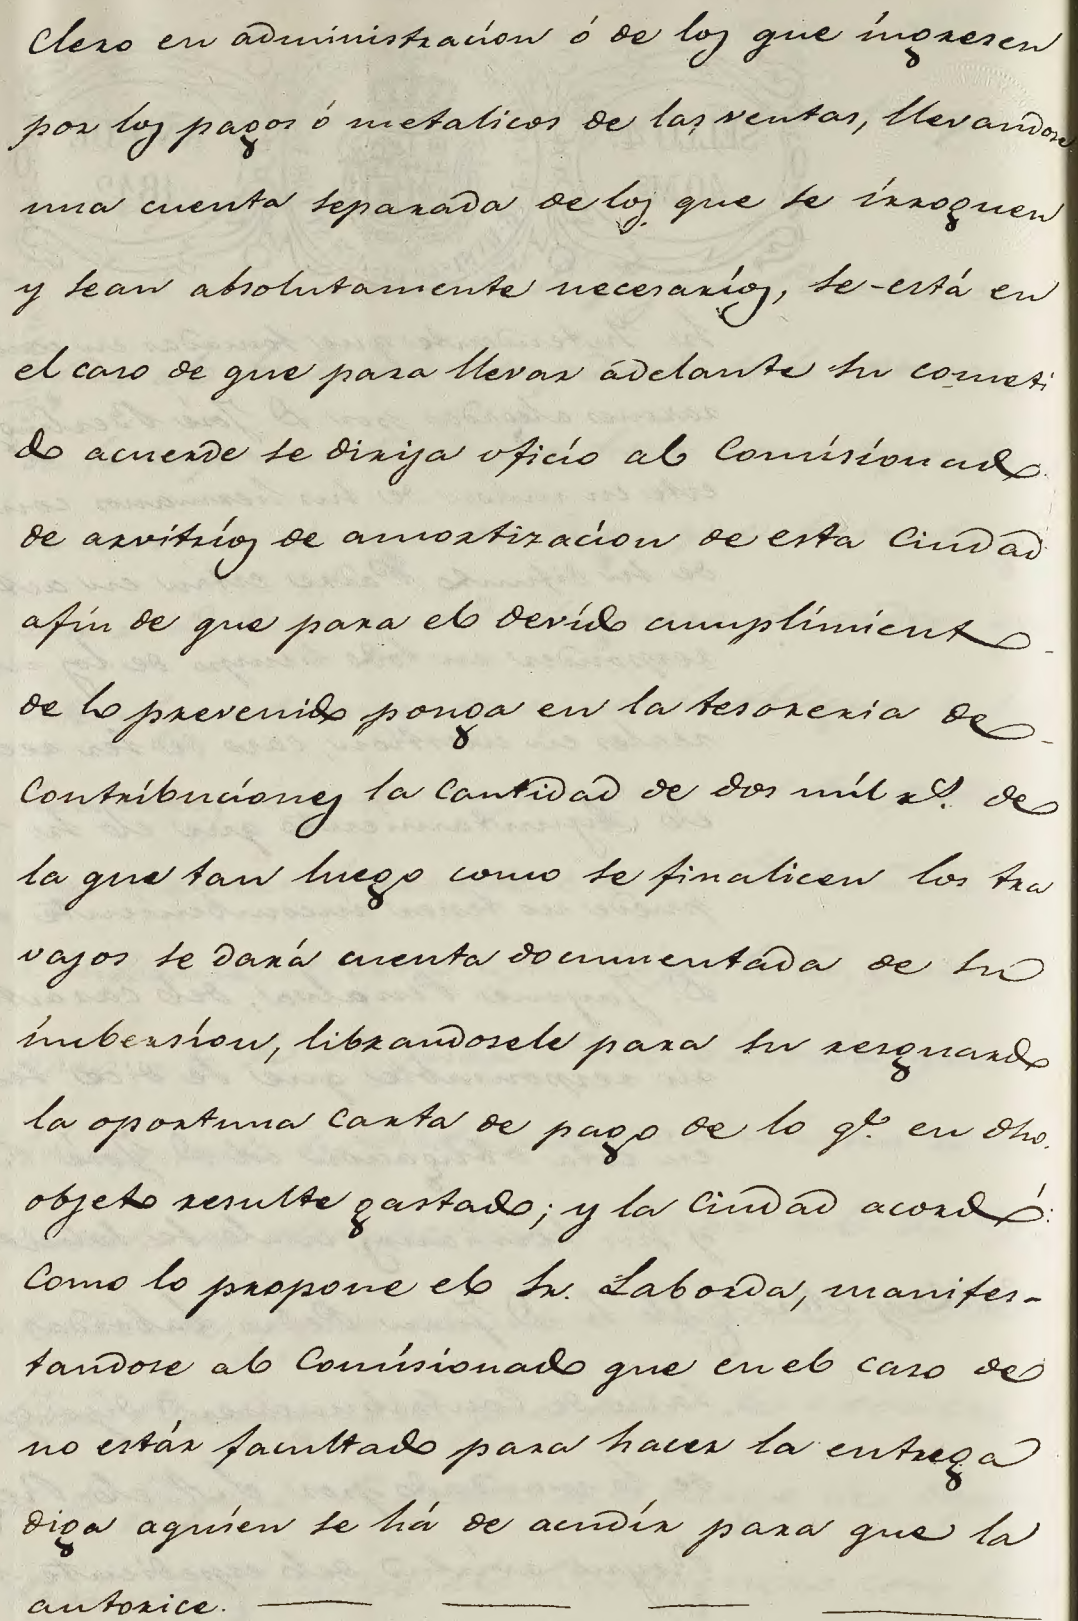 Clero en administracion ó de los que íngresen
por los pagos ó metalicos de las ventas, llevandose
una cuenta separada de los que se írroguen
y sean absolutamente necesaríos, se-está en
el caso de que para llevar ádelante su cometi
do acuerde se dirija oficio al Comísíonado
de arvítríos de amortizacion de esta Ciudad
afin de que para el devído cumplímiento
de lo prevenido ponga en la tesoreria de
Contribuciones la Cantidad de dos mil rs. de
la que tan luego como se finalicen los tra
vajos se dará cuenta documentada de su
ímbersíon, librandosele para su resguardo
la oportuna Carta de pago de lo qe. en dho.
objeto resulte gastado; y la Ciudad acordó:
Como lo propone el Sr. Laborda, manifes-
tandose al Comísionado que en el caso de
no estár facultado para hacer la entrega
diga aquíen se há de acudír para que la
autorice.